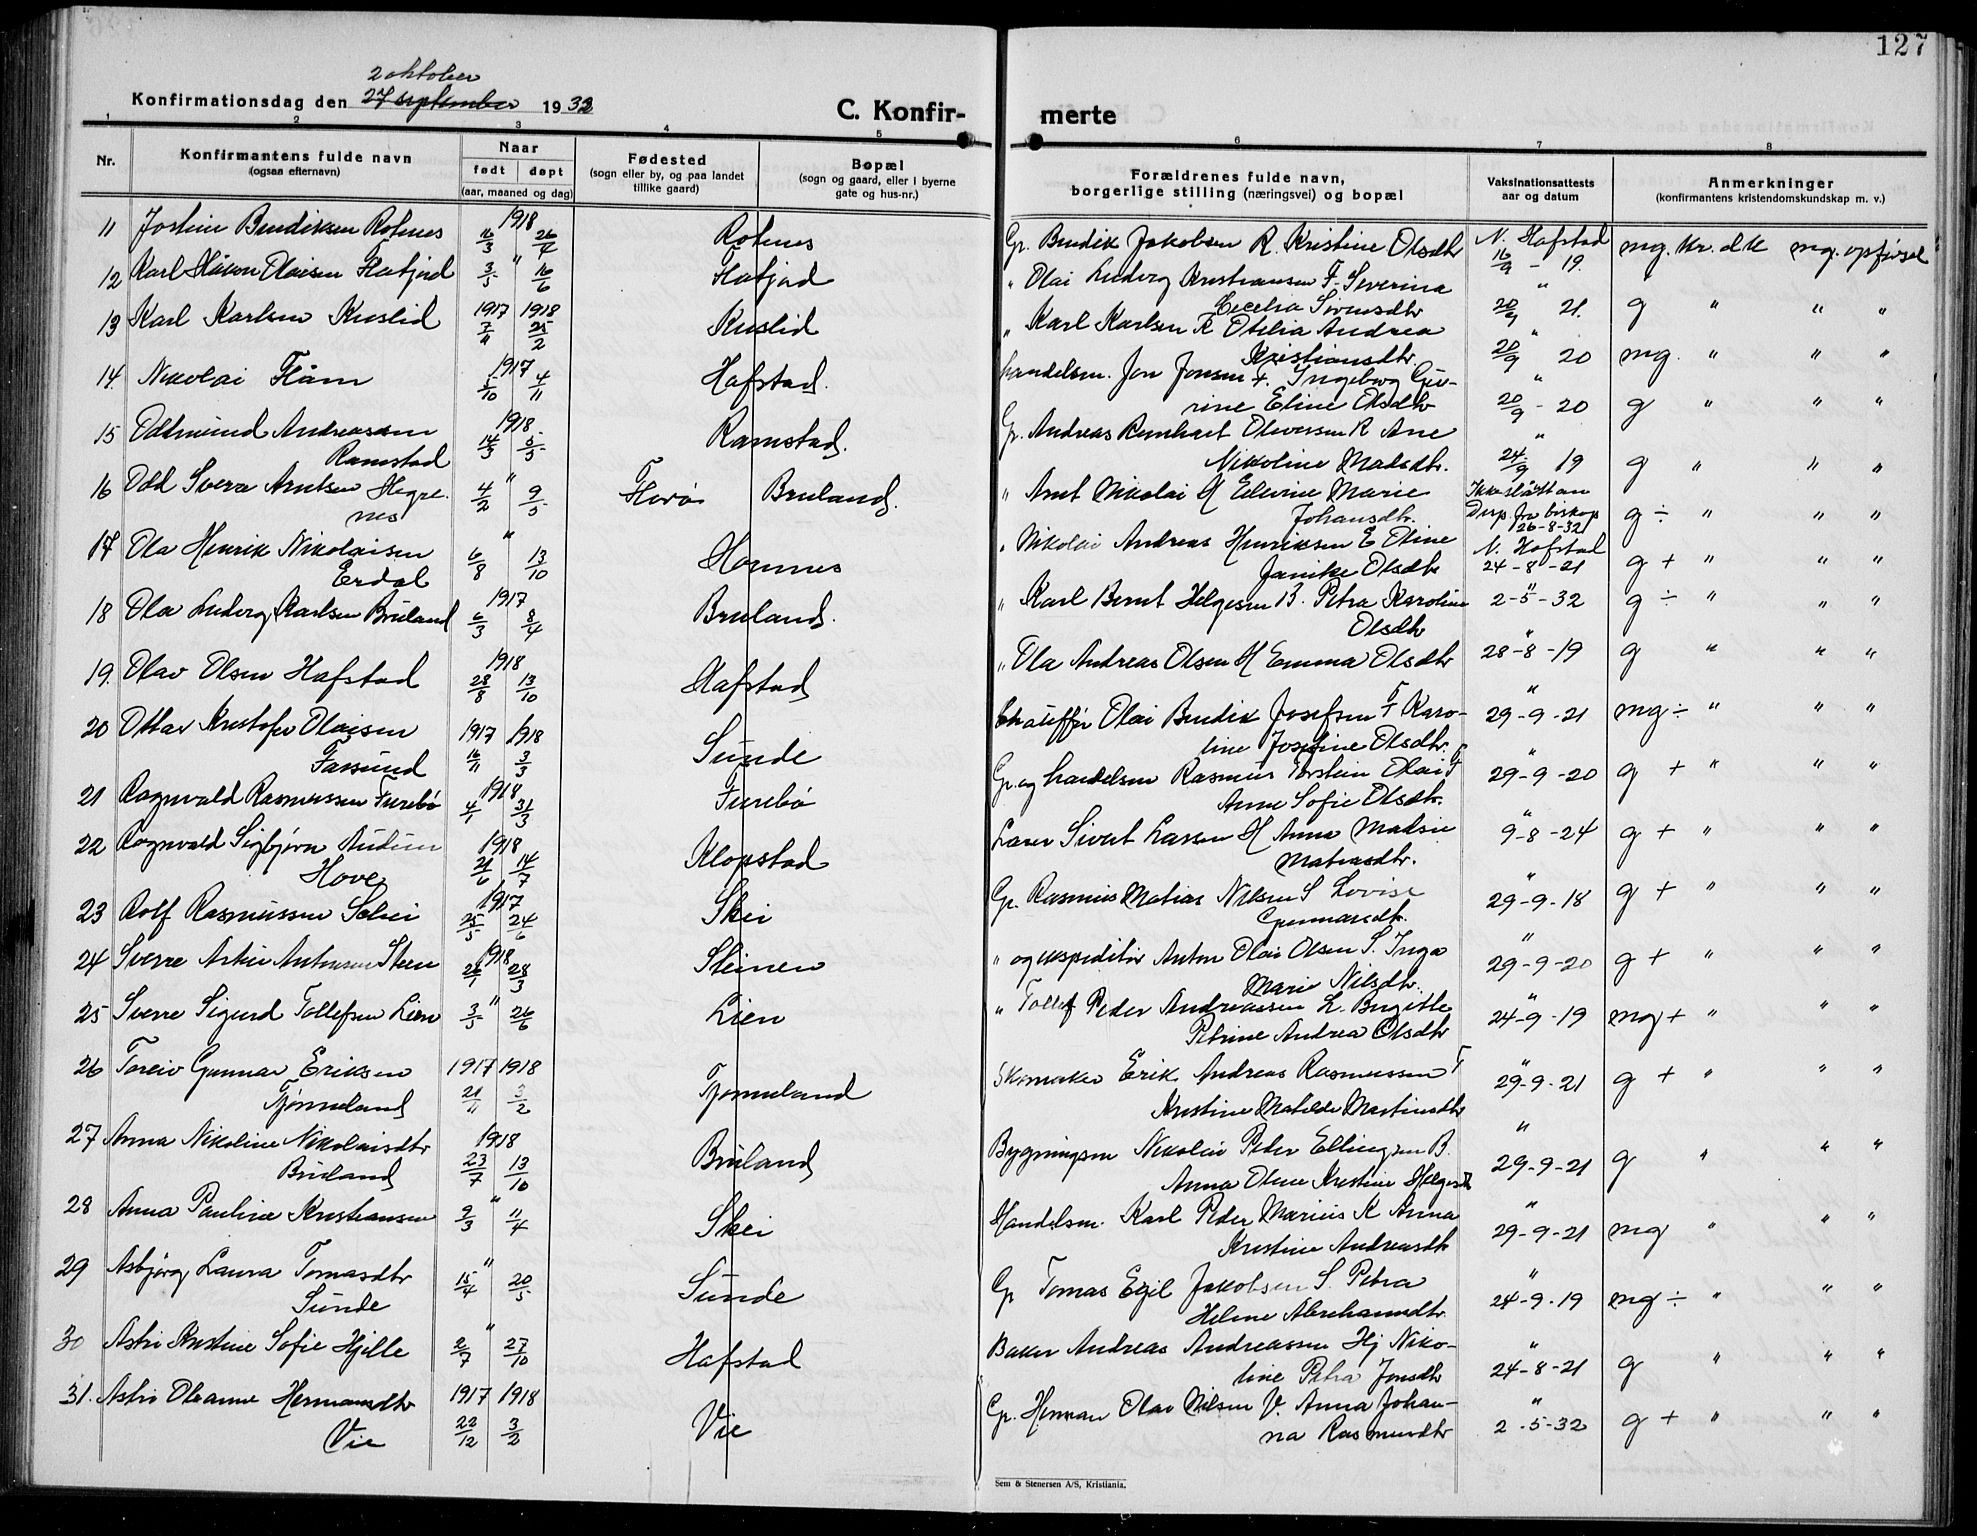 127
2 oktober
Konfirmationsdag den 27 september 1932
C. Konfir- merte
1 2 3 4 5 6 7 8
Nr.
Konfirmantens fulde navn
(ogsaa efternavn)
Naar
født døpt
(aar, maaned og dag)
Fødested
(sogn eller by, og paa landet
tillike gaard)
Bopæl
(sogn og gaard, eller i byerne
gate og hus-nr.)
Forældrenes fulde navn,
borgerlige stilling (næringsvei) og bopæl
Vaksinationsattests
aar og datum
Anmerkninger
(konfirmantens kristendomskundskap m. v.)
11 Jostein Bendiksen Rotnes 1918 16/3 26/4 Rotnes Gr. Bendik Jakobsen R. Kristine Olsdtr N. Hafstad 16/9 - 19. mg. kr. dk mg. opførsel
12 Karl Håkon Olaisen Flatjord 3/5 " 16/6 " Olai Ludvig Kristiansen F. Severina
Cecelia Sivertsdtr " 20/9 21. g " " "
13 Karl Karlsen Kuslid 1917 1918 7/11 25/2 Kuslid " Karl Karlsen K Otilia Andrea
Kristiansdtr " 20/9 20 mg. " " "
14. Nikolai Flåm 1917 5/10 4/11 Hafstad. handelsm. Jon Jonsen F. Ingeborg Gu-
rine Eline Olsdtr " 20/9 - 20 g " " "
15 Oddmund Andreassen
Ramstad 1918 14/3 5/5 Ramstad. Gr. Andreas Reinhart Oliversen R Ane
Nikoline Madsdtr. " 24/9 19 g " " "
16 Odd Sverre Arntsen Hegre-
nes " 4/2 9/5 Florø Bruland. " Arnt Nikolai H Elevine Marie
Johansdtr. Ikke slått an
Disp. fra biskop
26-8-32 g ÷ " " "
17 Ola Henrik Nikolaisen
Erdal " 6/8 13/10 Hornnes " Nikolai Andreas Henriksen E Oline
Janike Olsdtr N. Hafstad
24-8-21 g + " " "
18 Ola Ludvig Karlsen Bruland 1917 6/3 8/4 Bruland. " Karl Bernt Helgesen B. Petra Karoline
Olsdtr " 2-5-32 g ÷ " " "
19. Olav Olsen Hafstad 1918 28/8 13/10 Hafstad " Ola Andreas Olsen H Emma Olsdtr " 28-8-19 g " " "
20 Ottar Kristofer Olaisen
Farsund 1917 1918 16/11 3/3 Sunde Chauffør Olai Bendik Josefsen F Karo-
line Josefine Olsdtr. " 29-9-21 mg ÷ " " "
21 Ragnvald Rasmussen Furebø 1918 4/1 31/3 Furebø Gr. og handelsm Rasmus Torstein Olai F
Anne Sofie Olsdtr. " 29-9-20 g + " " "
22 Ragnvald Sigbjørn Audun
Hove 1918 21/6 14/7 Klopstad Lærer Sivert Larssen H Anna Madsie
Matiasdtr. " 9-8-24 g + " " "
23 Rolf Rasmussen Schei 1917 25/5 24/6 Skei Gr. Rasmus Matias Nilsen S Lovise
Gunnarsdtr. " 29-9-18 g + " " "
24 Sverre Antonsen Steen 1918 26/1 28/3 Steinen " og ekspeditør Anton Olai Olsen S. Inga
Marie Nilsdtr. " 29-9-20 g + " " "
25 Sverre Sigurd Tollefsen Lien " 3/5 26/6 Lien " Tollef Peder Andreassen L. Birgitte
Petrine Andrea Olsdtr " 24-9-19 mg + " " "
26 Toreiv Gunnar Eriksen
Tjønneland 1917 1918 21/11 3/2 Tjønneland Skomaker Erik Andreas Rasmussen T
Kristine Matilde Martinsdtr " 29-9-21 g + " " "
27 Anna Nikoline Nikolaisdtr
Bruland 1918 23/7 13/10 Bruland Bygningsm Nikolai Peder Ellingsen B.
Anna Oline Kristine Helgesdtr " 29-9-21 g " " "
28 Anna Pauline Kristiansen " 9/3 11/4 Skei Handelsm. Karl Peder Marius K Anna
Kristine Andreasdtr " 29-9-21 mg " " "
29 Asbjørg Laura Tomasdtr
Sunde " 15/4 20/5 Sunde Gr Tomas Egil Jakobsen S. Petra
Helene Abrahamsdtr " 24-9-19 mg ÷ " " "
30 Astri Kristine Sofie Hjelle " 2/7 27/10 Hafstad Baker Andreas Andreassen Hj Niko-
line Petra Jonsdtr " 24-8-21 g " " "
31. Astri Oleanne Hermansdtr
Vie 1917 1918 22/12 3/2 Vie Gr. Herman Olai Nilsen V. Anna Johan-
na Rasmusdtr " 2-5-32 g + " " "
Sem & Stenersen A/S, Kristiania.